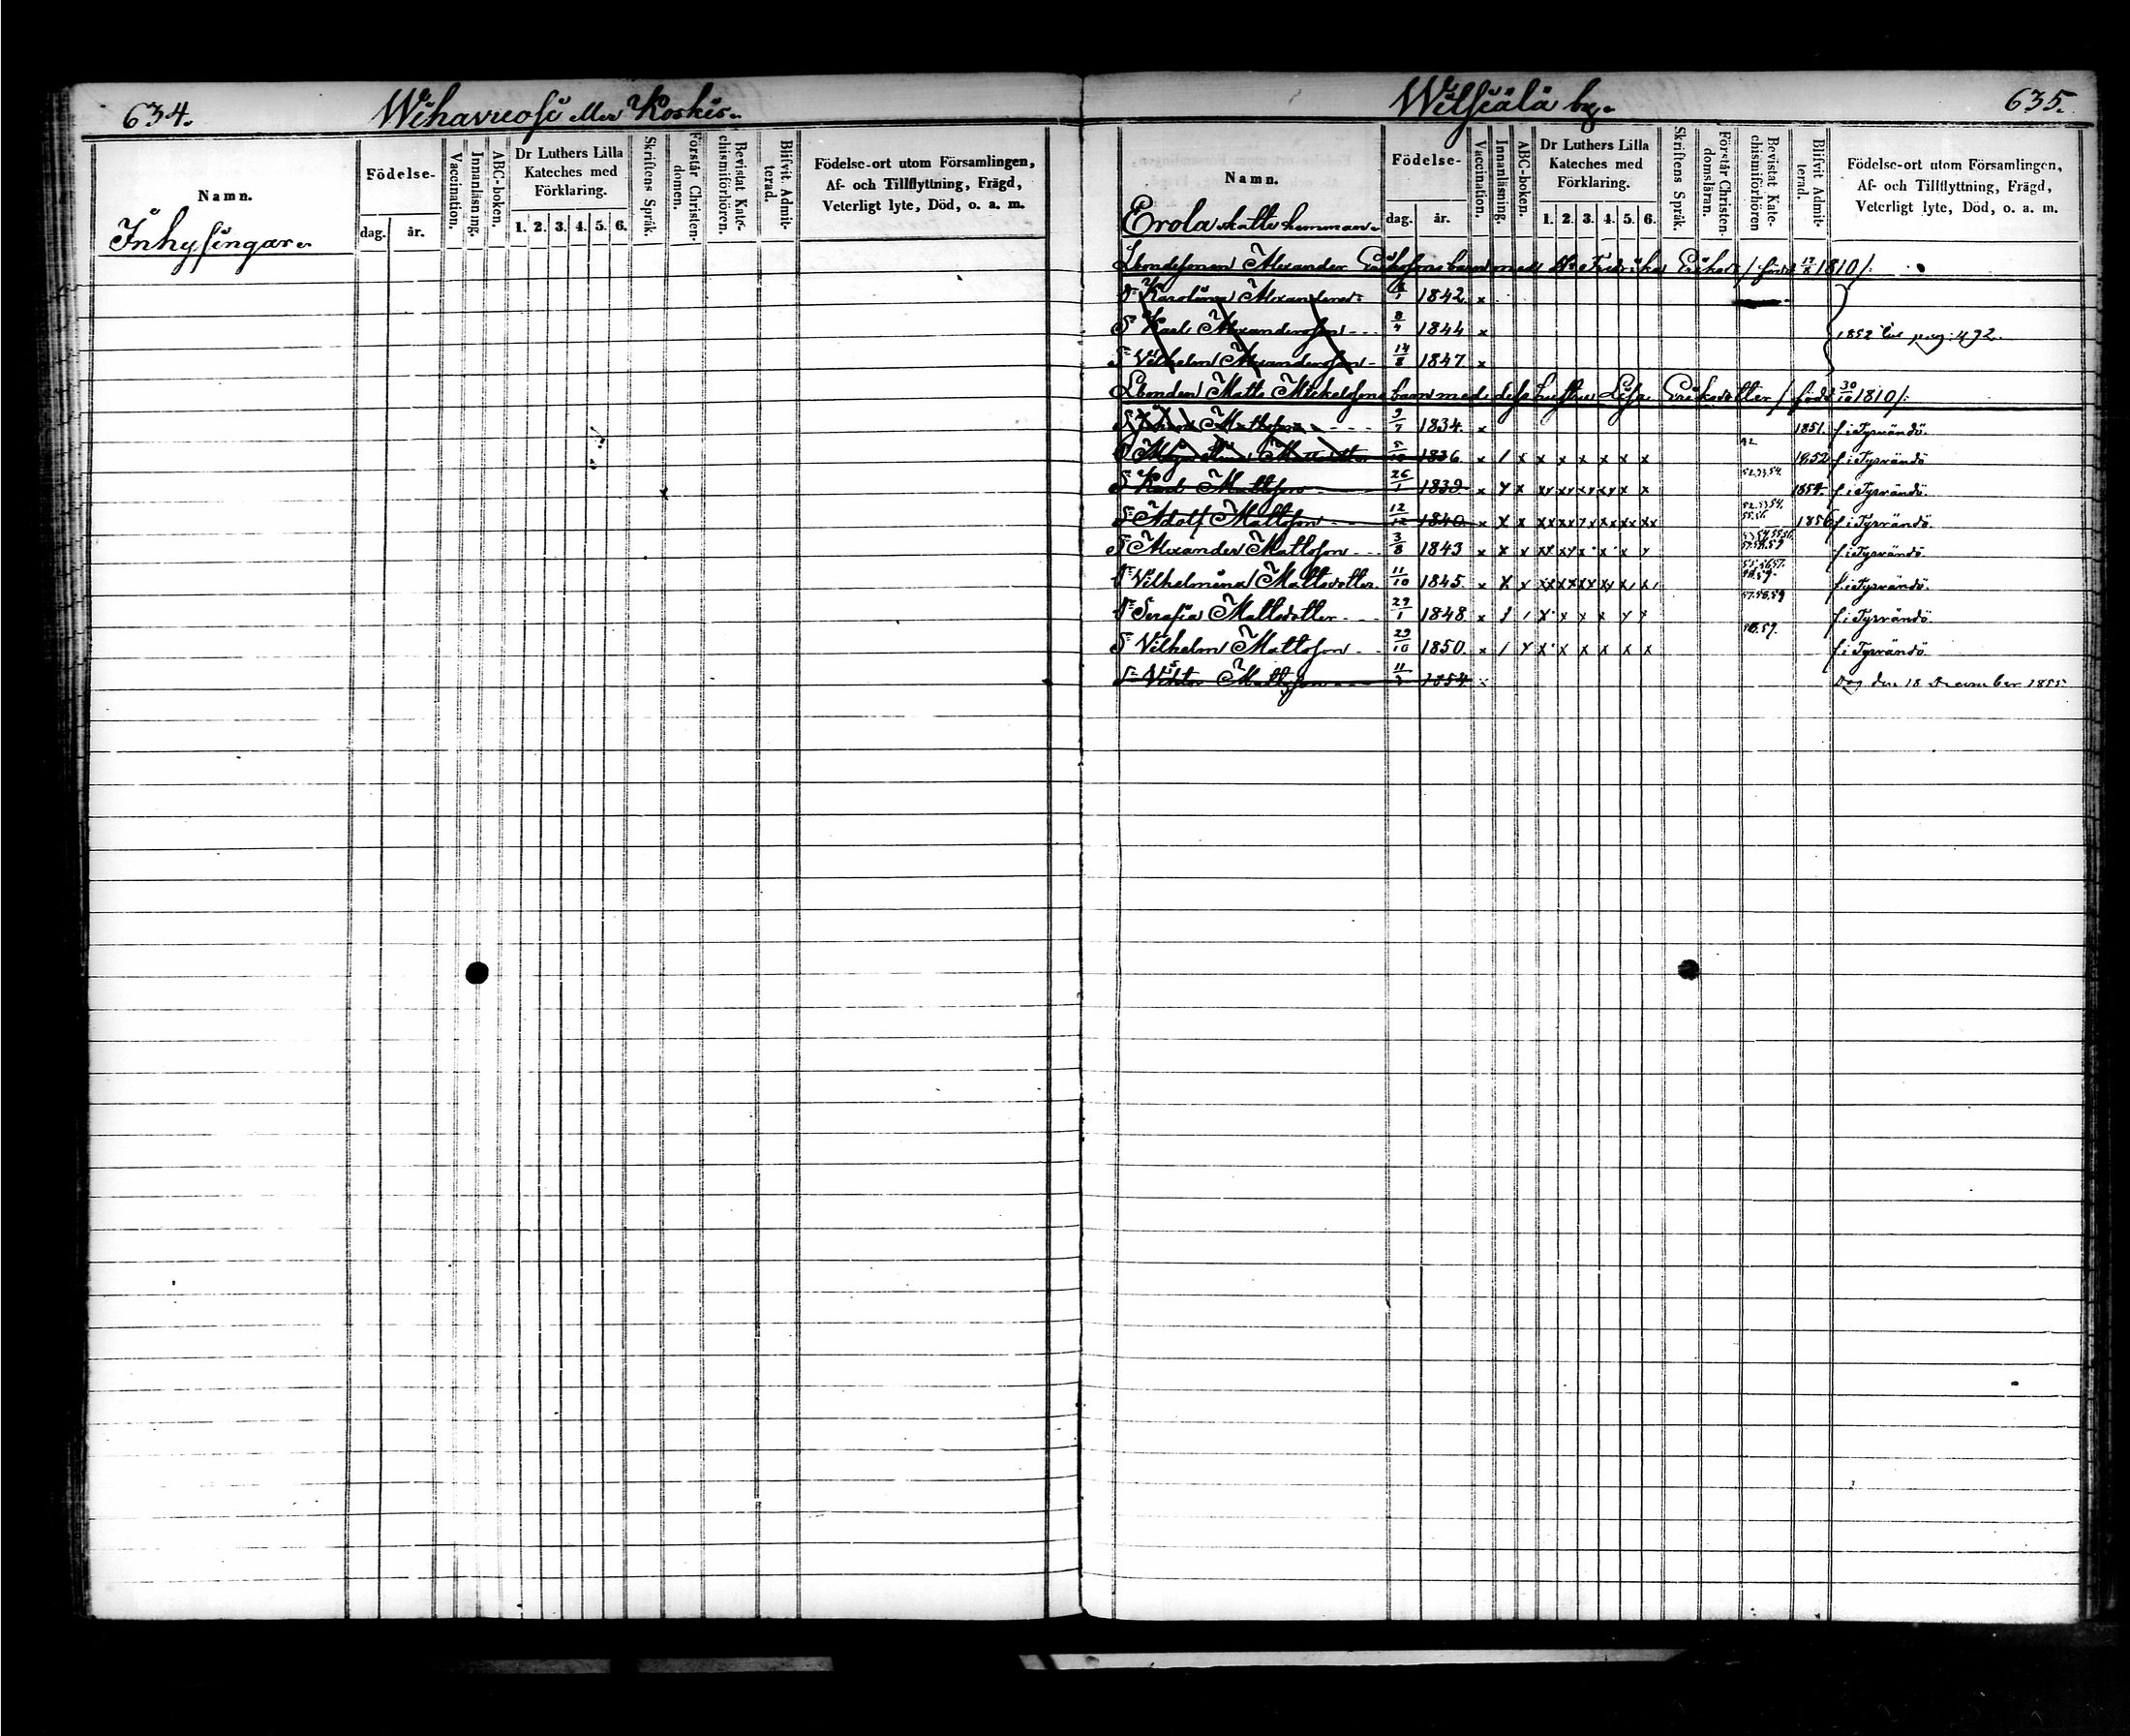 634. Wihavuosi eller Koskis.
Namn.
Födelse-
dag. år.
Vaccination.
Innanläsning.
ABC-boken.
Dr Luthers Lilla
Kateches med
Förklaring.
1. 2. 3. 4. 5. 6.
Skriftens Språk.
Förstår Christen-
domen.
Bevistat Kate-
chismiförhören.
Blifvit Admit-
terad.
Födelse-ort utom Församlingen,
Af- och Tillflyttning, Frägd,
Veterligt lyte, Död, o. a. m.
Inhysingar
Wilsiälä by. 635.
Namn.
Födelse-
dag. år.
Vaccination.
Innanläsning.
ABC-boken.
Dr Luthers Lilla
Kateches med
Förklaring.
1. 2. 3. 4. 5. 6.
Skriftens Språk.
Förstår Christen-
domsläran.
Bevistat Kate-
chismiförhören
Blifvit Admit-
terad.
Födelse-ort utom Församlingen,
Af- och Tillflyttning, Frägd,
Veterligt lyte, Död, o. a. m.
Erola skatte hemman.
Bondesonen Alexander Erikssons barn med Fredrika Eriksd: / född 1810/:
D: Karolina Alexandersd: 1842 x
S: Karl Alexandersson 8/4 1844 x 1852 pag: 492.
S: Vilhelm Alexandersson 14/8 1847 x
Bonden Matts Mickelssons barn med dess hustru Lisa Eriksdotter / född 30/10 1810/:
S: Mattsson 9/7 1834. x 1851. f. i Tyrvändö.
D: Mattsdotter 1836. x / x x x x x x x 52 1852 f. i Tyrvändö
S: Karl Mattsson 26/1 1839 52.53.54. 1854. f. i Tyrvändö.
S: Adolf Mattsson 12/12 1840 52.53.54. 55.56. 1856 f. i Tyrvändö.
S: Alexander Mattsson 3/8 1843 57.58.59 f. i Tyrvändö.
D: Vilhelmina Mattsdotter 11/10 1845. 55.56.57. 58.59. f. i Tyrvändö.
D: Serafia Mattsdotter 29/1 1848 57.58.59 f. i Tyrvändö.
S: Vilhelm Mattsson 29/10 1850 58.59. f. i Tyrvändö
S: Viktor Mattsson 1854 x Dog den 18 December 1855